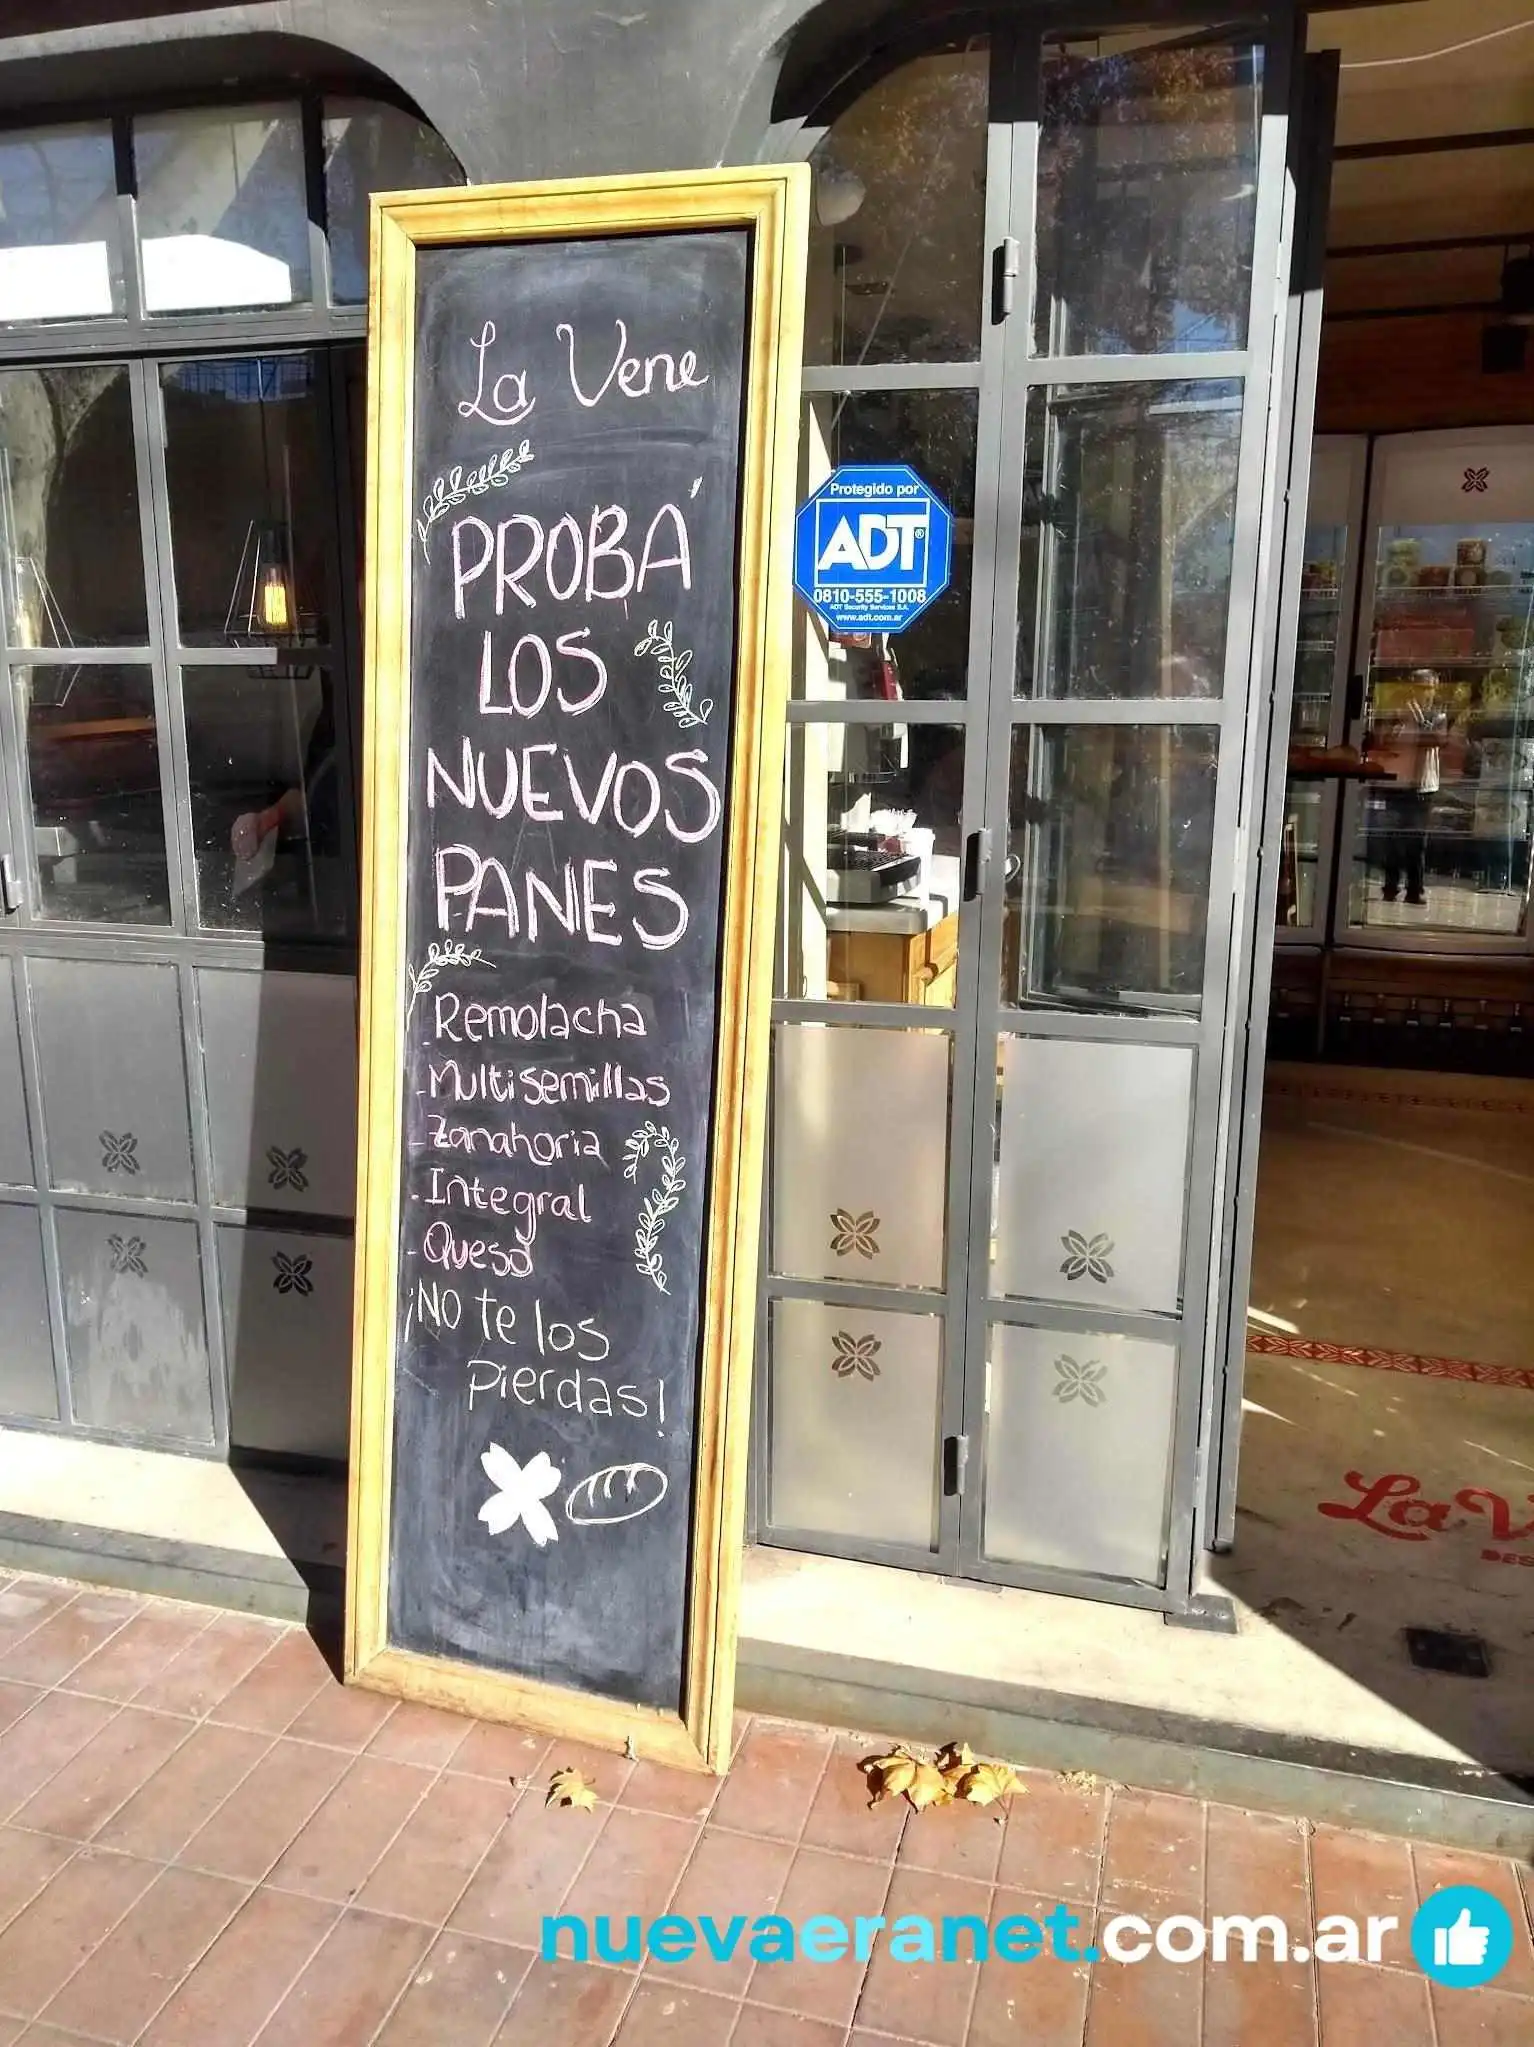 La Vene
PROBÁ
LOS
NUEVOS
PANES
- Remolacha
- Multisemillas
- Zanahoria
- Integral
- Queso
¡NO te los
pierdas!
Protegido por
ADT®
0810-555-1008
ADT Security Services S.A.
www.adt.com.ar
La V
DES
nuevaeranet.com.ar